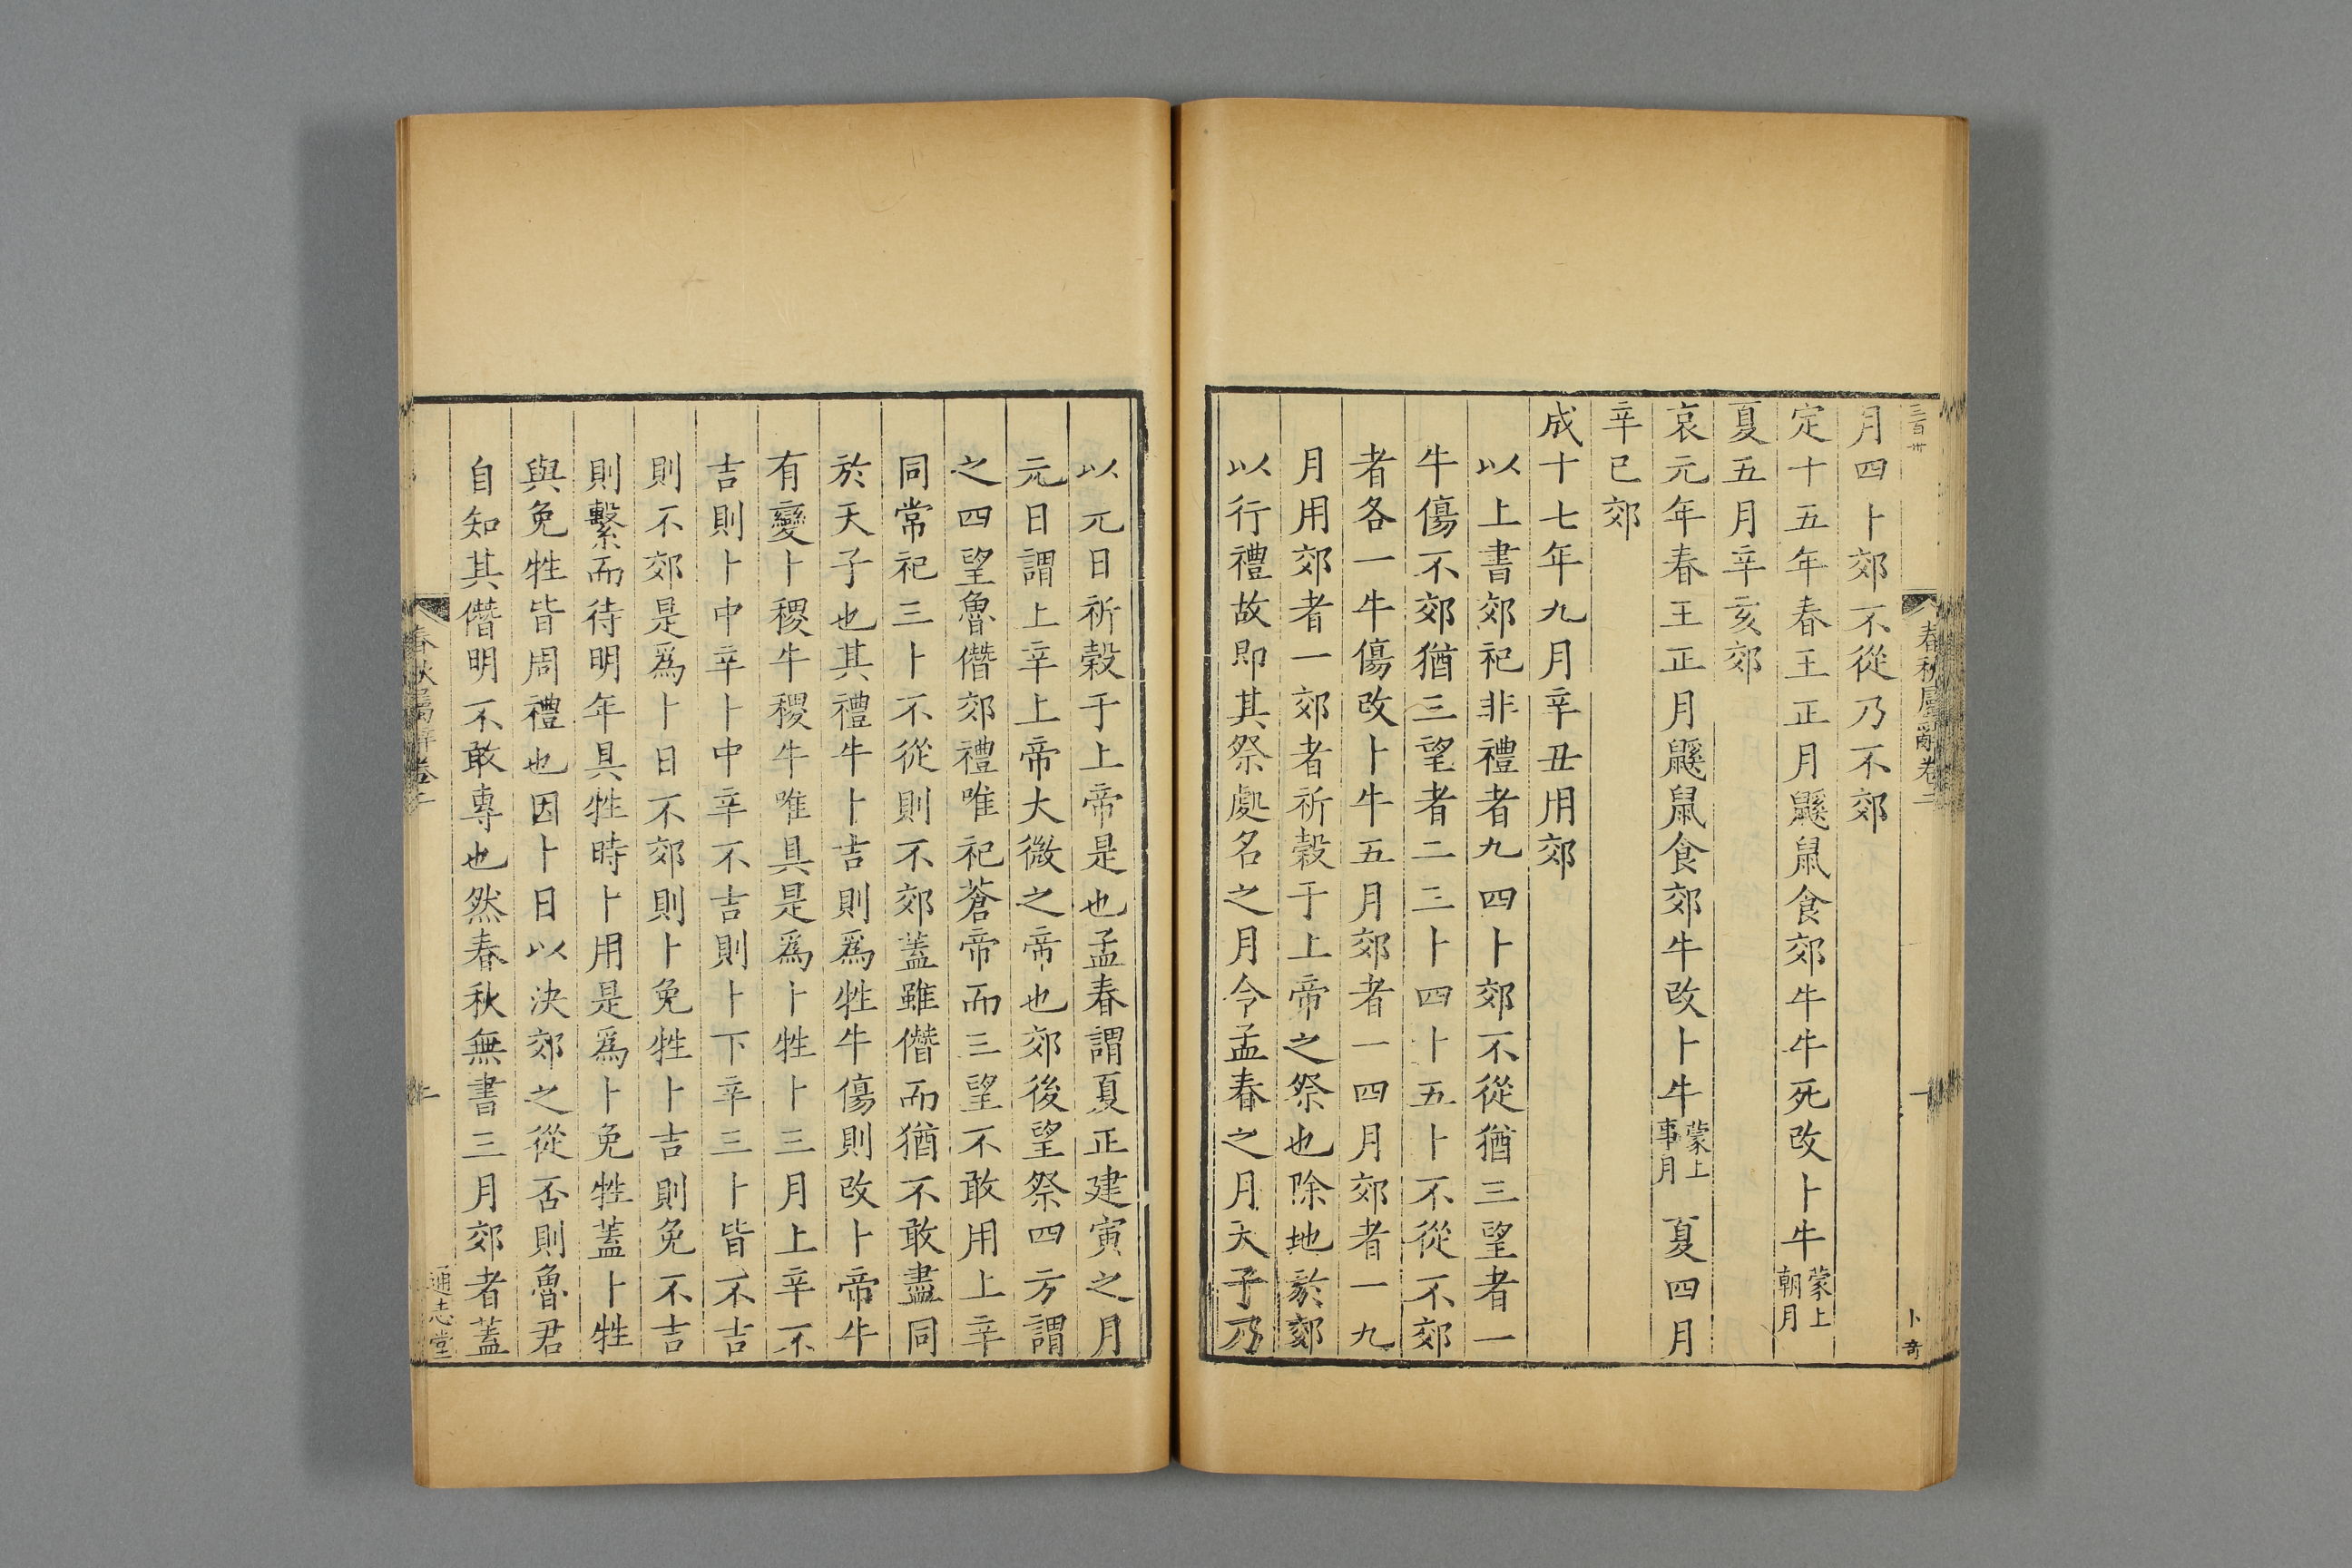 三百卅
春秋屬辭卷二
十
卜奇
月四卜郊不從乃不郊
定十五年春王正月鼷鼠食郊牛牛死改卜牛蒙上朝月
夏五月辛亥郊
哀元年春王正月鼷鼠食郊牛改卜牛蒙上事月 夏四月
辛巳郊
成十七年九月辛丑用郊
以上書郊祀非禮者九四卜郊不從猶三望者一
牛傷不郊猶三望者二三卜四卜五卜不從不郊
者各一牛傷改卜牛五月郊者一四月郊者一九
月用郊者一郊者祈穀于上帝之祭也除地於郊
以行禮故即其祭處名之月令孟春之月天子乃
以元日祈穀于上帝是也孟春謂夏正建寅之月
元日謂上辛上帝大微之帝也郊後望祭四方謂
之四望魯僭郊禮唯祀蒼帝而三望不敢用上辛
同常祀三卜不從則不郊蓋雖僭而猶不敢盡同
於天子也其禮牛卜吉則為牲牛傷則改卜帝牛
有變卜稷牛稷牛唯具是為卜牲卜三月上辛不
吉則卜中辛卜中辛不吉則卜下辛三卜皆不吉
則不郊是為卜日不郊則卜免牲卜吉則免不吉
則繫而待明年具牲時卜用是為卜免牲蓋卜牲
與免牲皆周禮也因卜日以決郊之從否則魯君
自知其僭明不敢專也然春秋無書三月郊者蓋
春秋屬辭卷二
通志堂